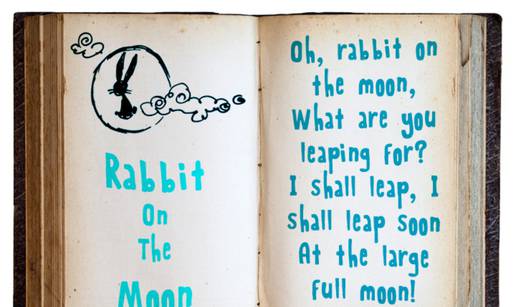 Rabbit
On
The
Moon
Oh, rabbit on
the moon,
What are you
leaping for?
I shall leap, I
shall leap soon
At the large
full moon!